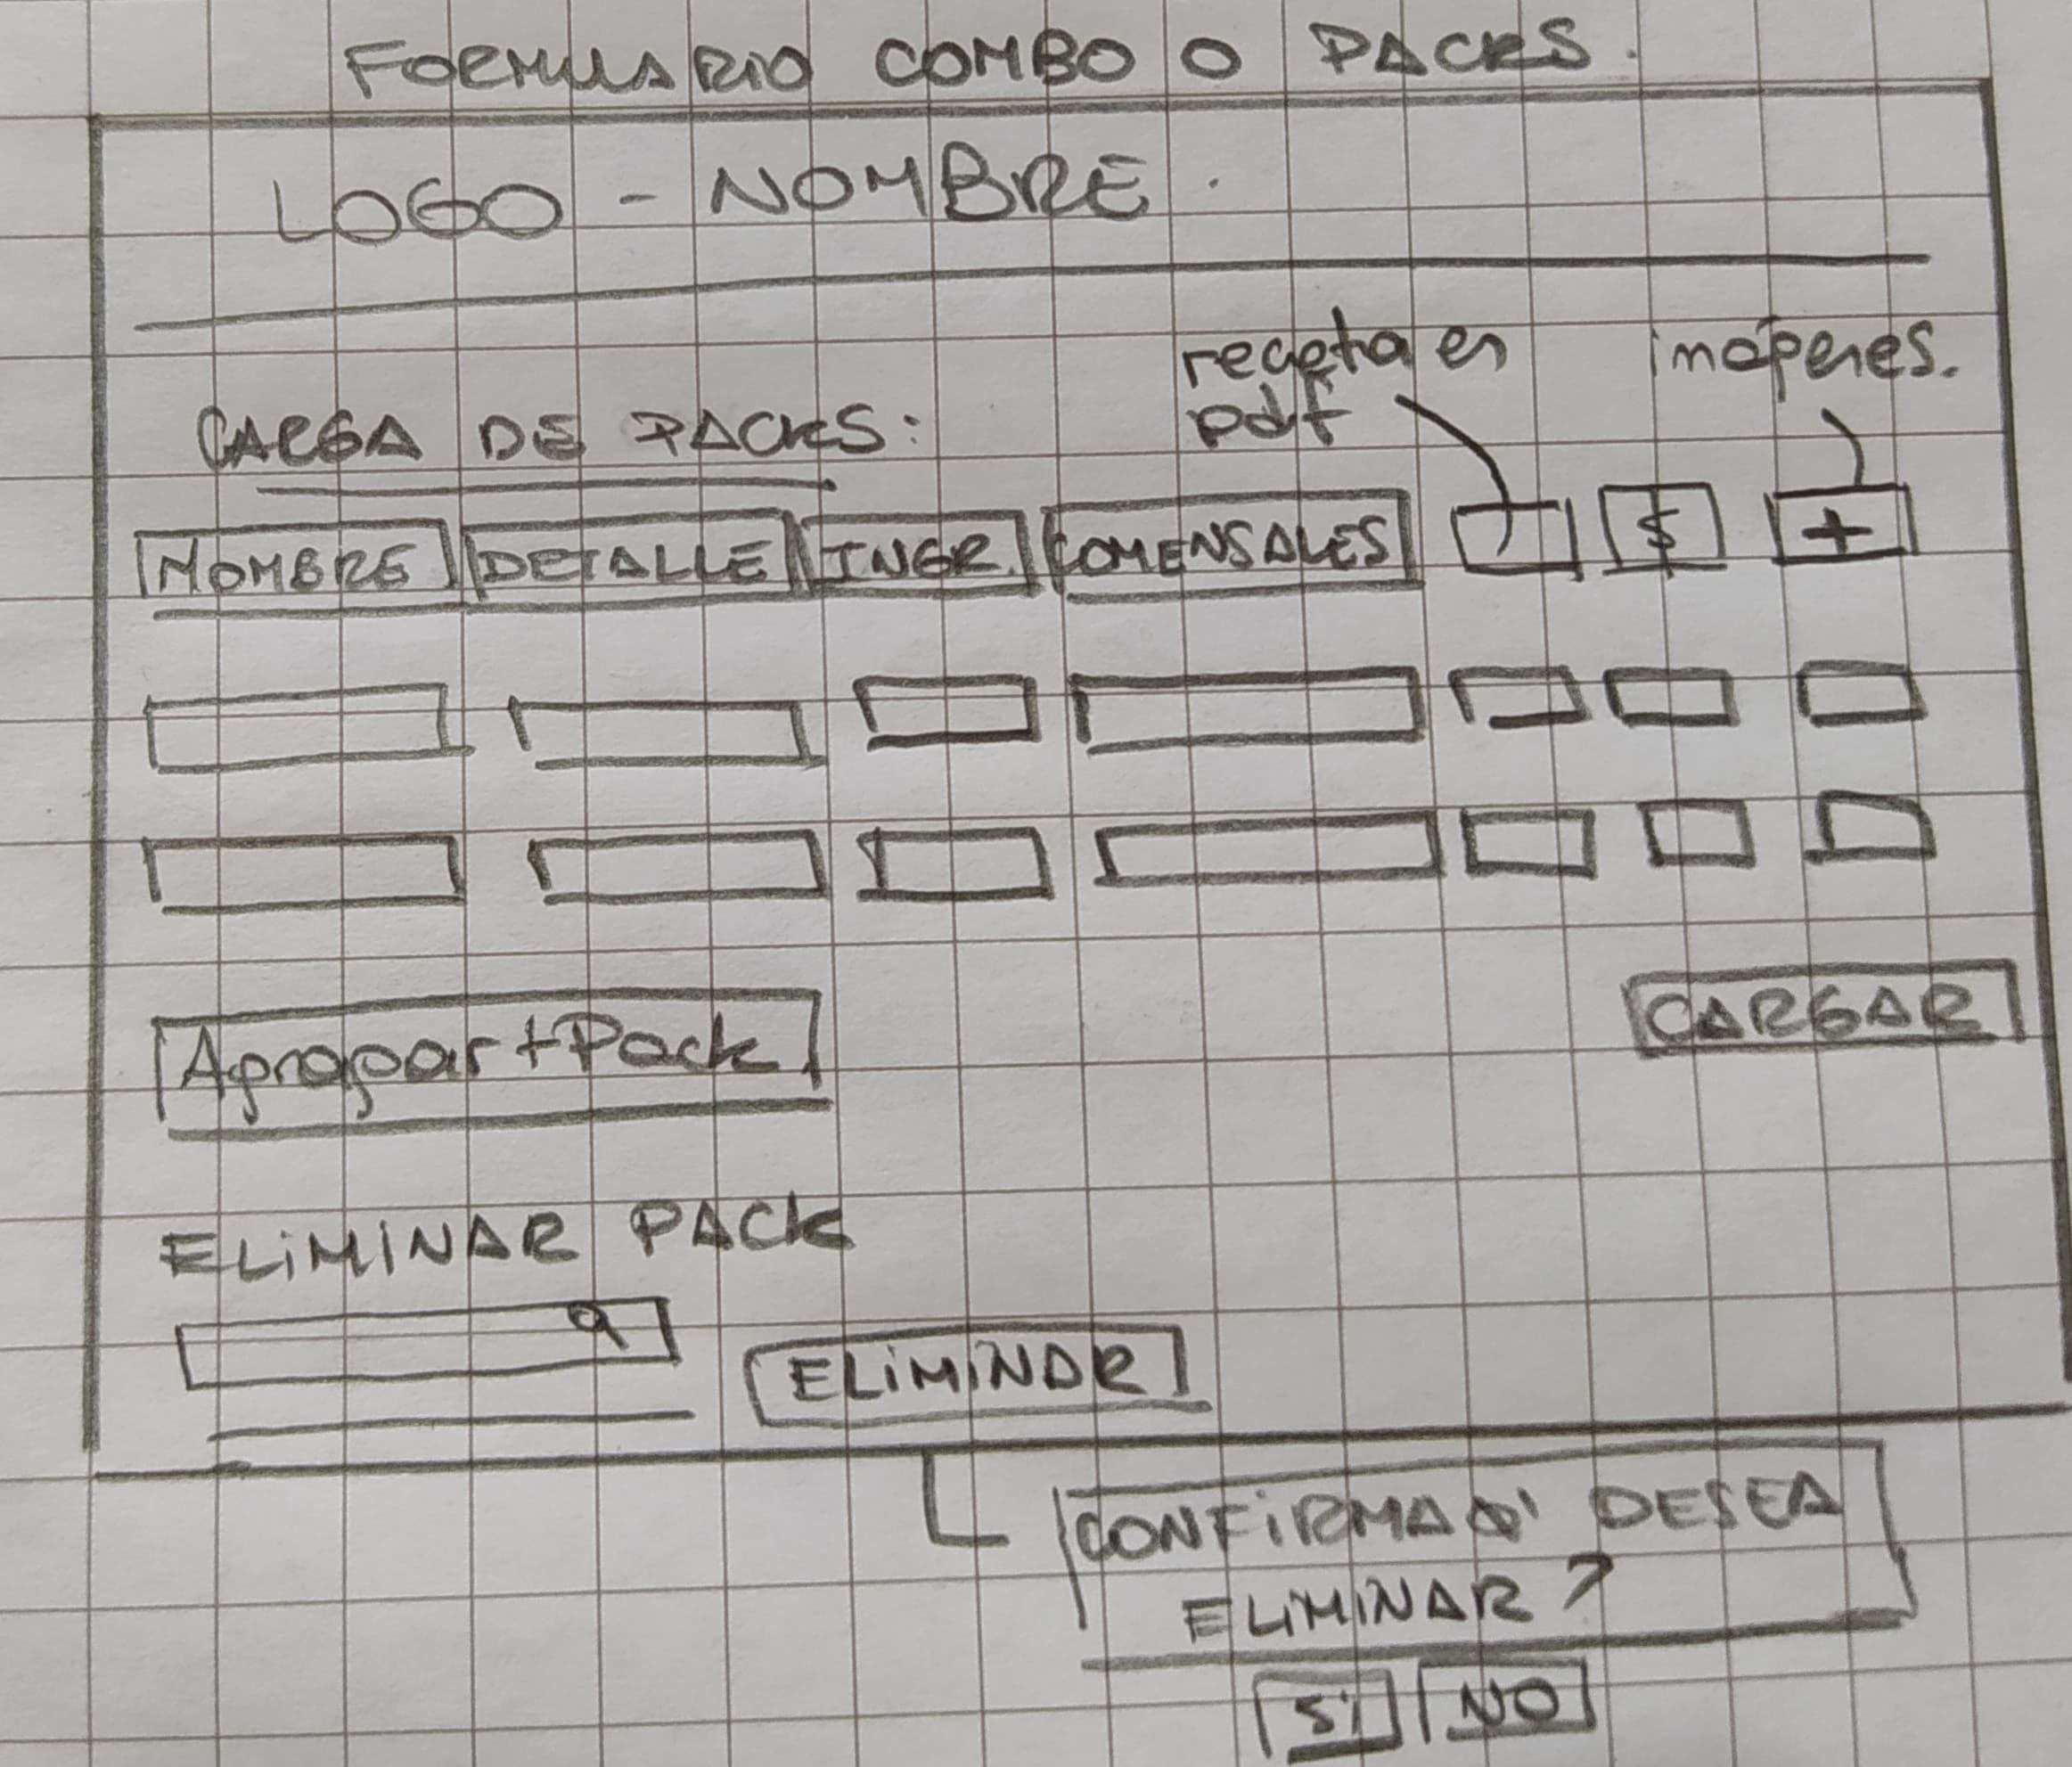 FORMULARIO COMBO O PACKS.
LOGO - NOMBRE.
receta en pdf
imágenes.
CARGA DE PACKS:
NOMBRE DETALLE INGR. COMENSALES $ +
CARGAR
Agregar + Pack
ELIMINAR PACK
ELIMINAR
CONFIRMA DESEA
ELIMINAR?
Si NO